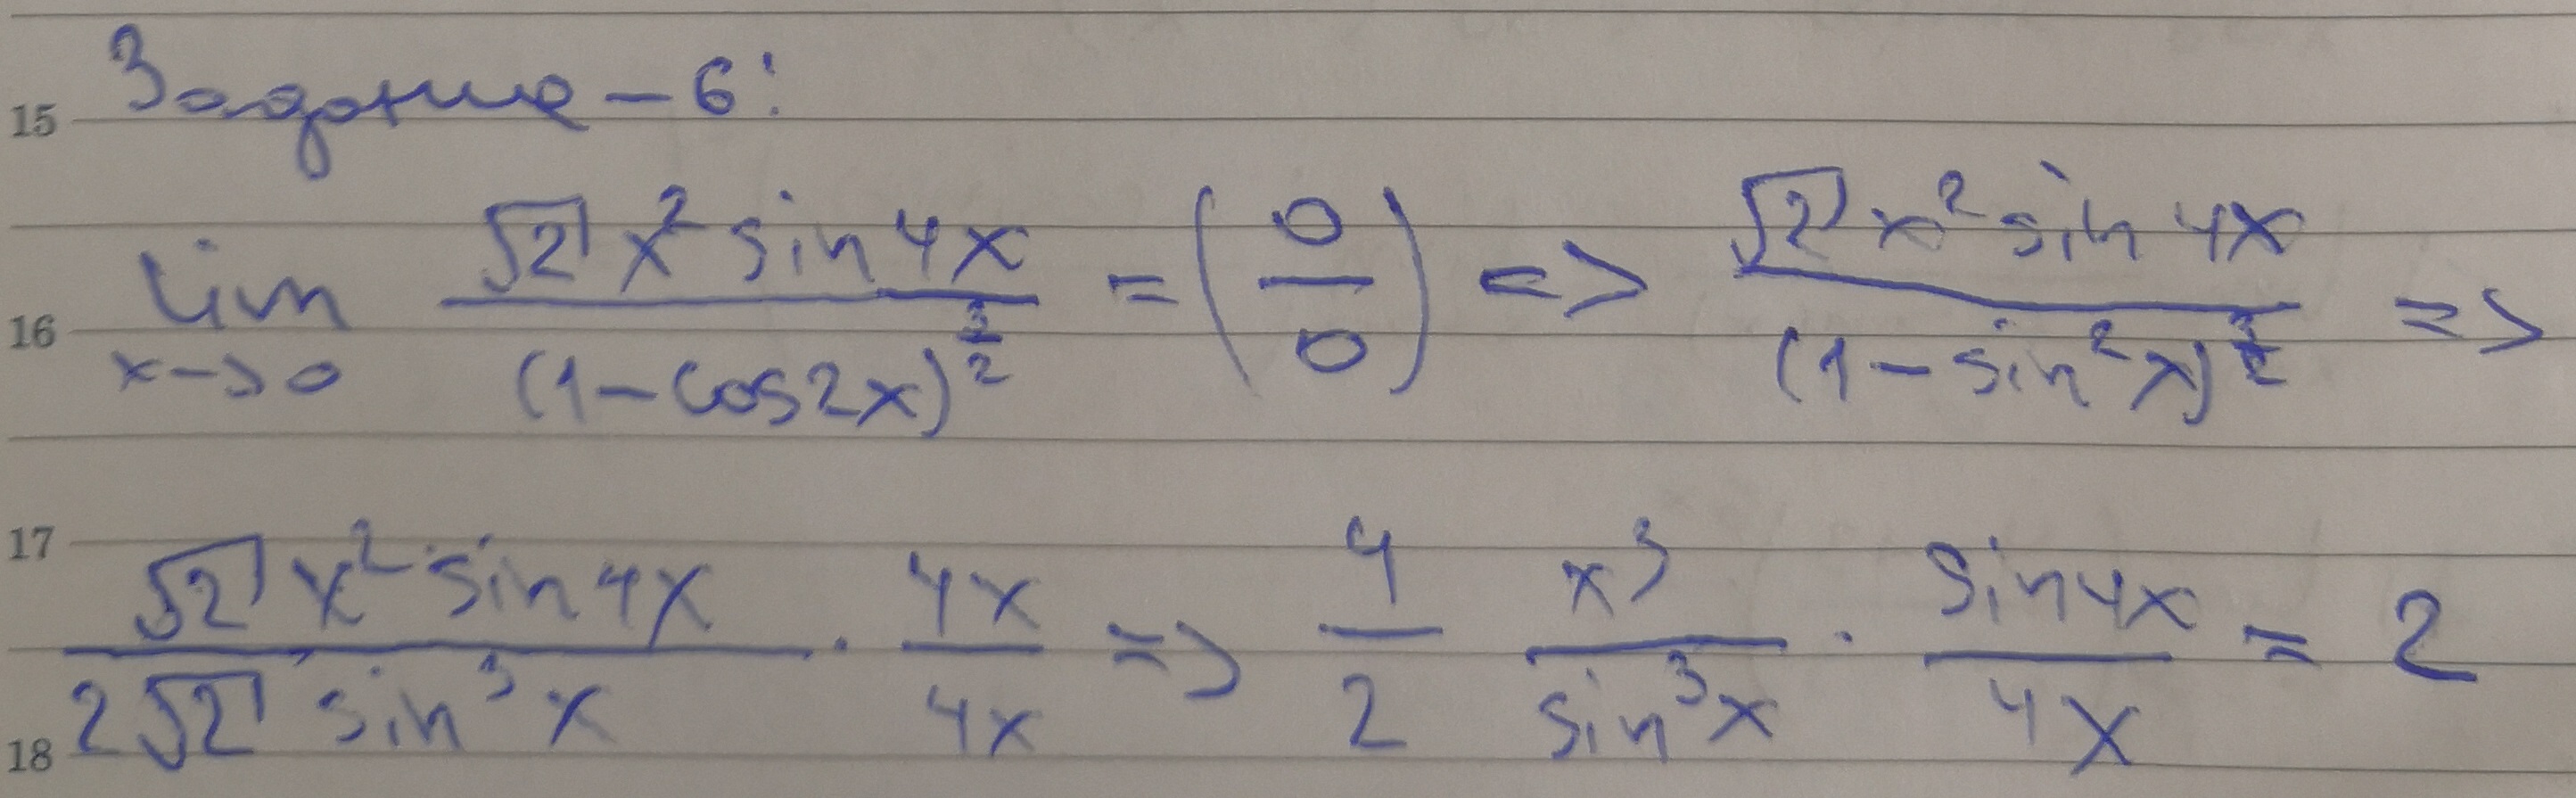 Задание - 6:
15
lim x->0 √2 x² sin 4x / (1 - cos2x)^(3/2) = (0/0) => √2 x² sin 4x / (1 - sin² x)^(3/2) =>
16
17
√2 x² sin 4x / 2√2 sin³ x · 4x / 4x => 4/2 x³ / sin³ x · sin 4x / 4x = 2
18